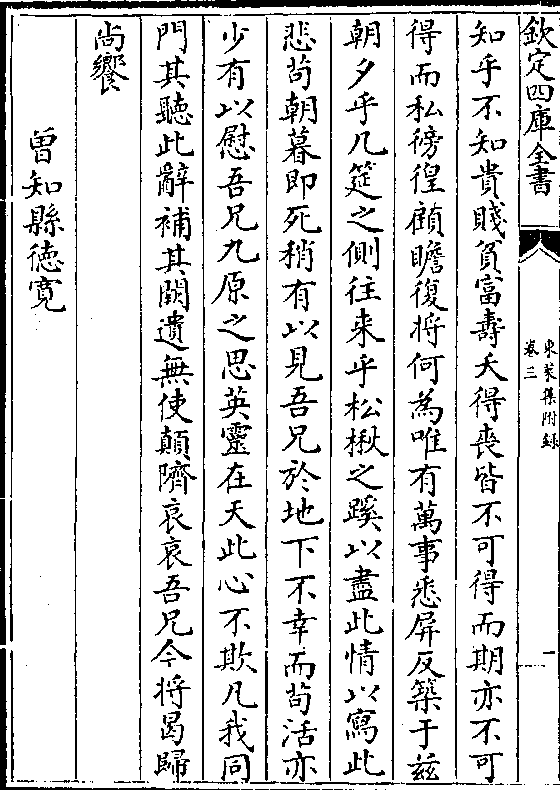 欽定四庫全書
東萊集附録
卷三
一
知乎不知貴賤貧富壽夭得喪皆不可得而期亦不可
得而私徬徨顧瞻復將何為唯有萬事悉屏反築于兹
朝夕乎几筵之側往来乎松楸之蹊以盡此情以寫此
悲苟朝暮即死稍有以見吾兄於地下不幸而苟活亦
少有以慰吾兄九原之思英靈在天此心不欺凡我同
門其聽此辭補其闕遺無使顛隮哀哀吾兄今將曷歸
尚饗
曾知縣德寛